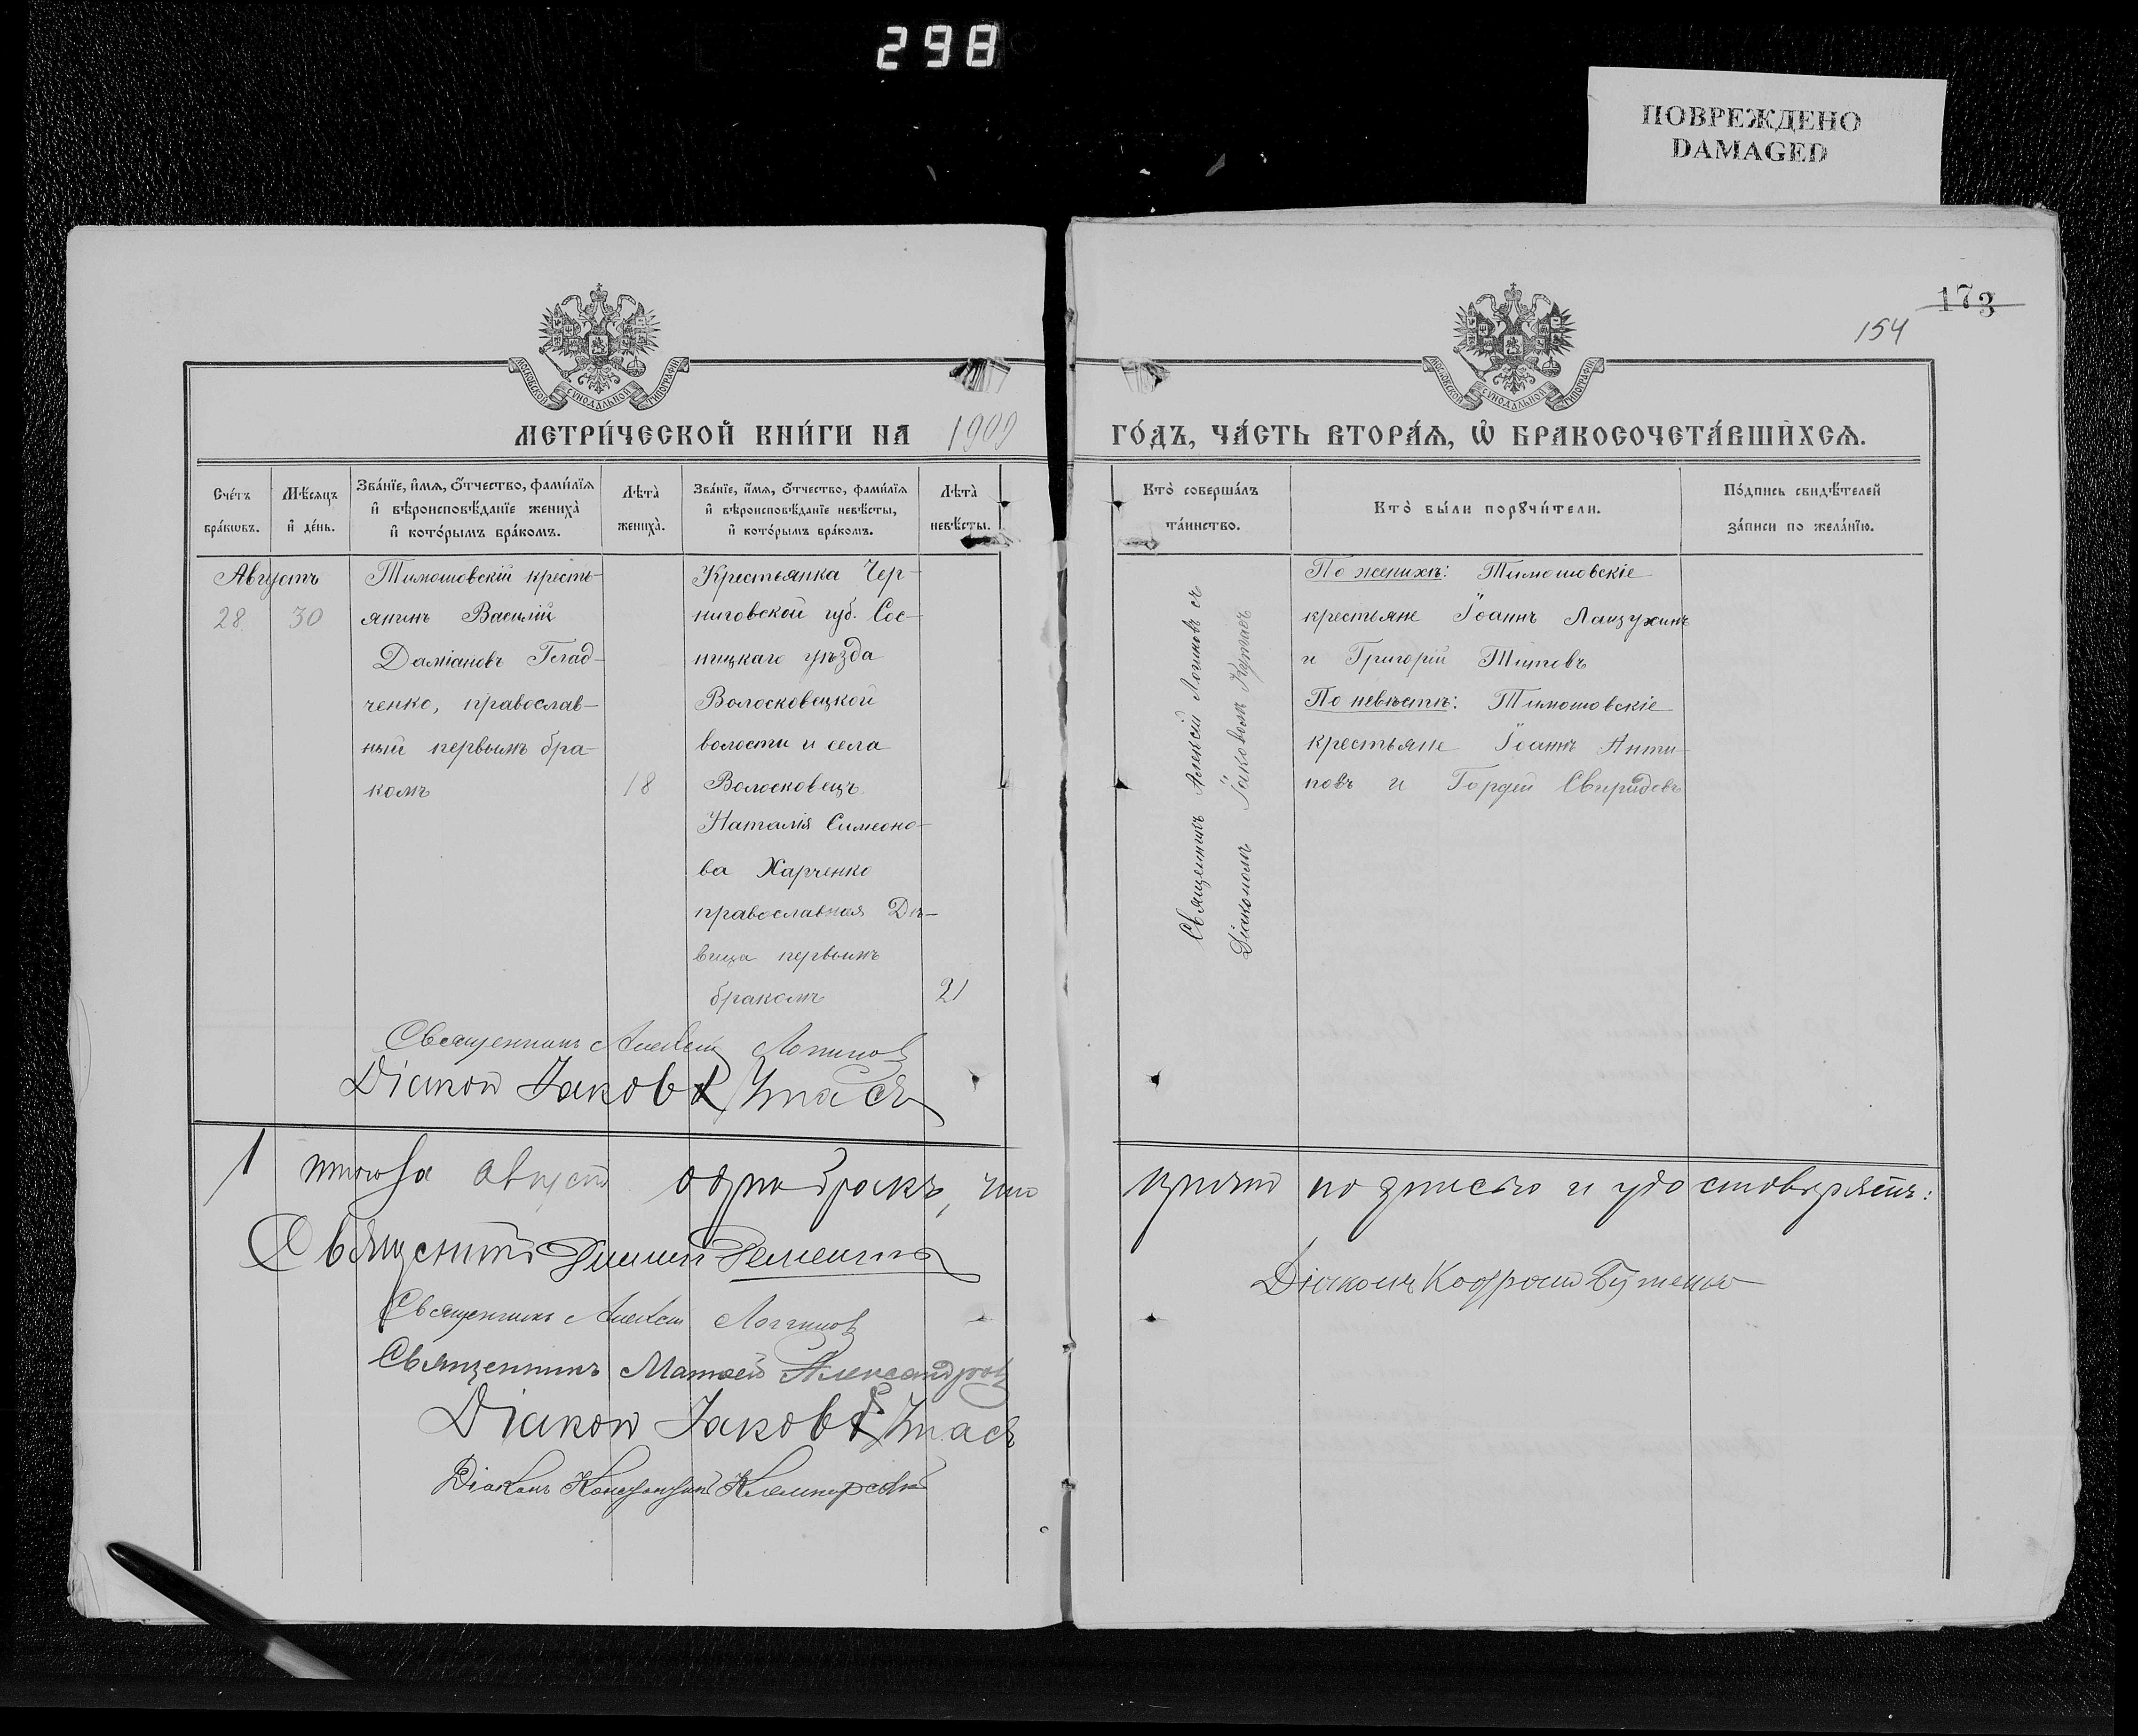 298
ПОВРЕЖДЕНО
DAMAGED
173
154
МОСКОВСКОЙ СѴНОДАЛЬНОЙ ТИПОГРАФІИ
МОСКОВСКОЙ СѴНОДАЛЬНОЙ ТИПОГРАФІИ
МЕТРИ́ЧЕСКОЙ КНИ́ГИ НА 1909 ГО́ДЪ, ЧА́СТЬ ВТОРА́Ѧ, Ѽ БРАКОСОЧЕТА́ВШИХСѦ.
Сче́тъ
бра́кѡвъ.
Мѣ́сѧцъ
и҆ де́нь.
Зва́нїе, и҆́мѧ, ѻ҆́тчество, фами́лїѧ
и҆ вѣроисповѣ́данїе жениха̀
и҆ кото́рымъ бра́комъ.
Лѣ́та̀
жениха̀.
Зва́нїе, и҆́мѧ, ѻ҆́тчество, фами́лїѧ
и҆ вѣроисповѣ́данїе невѣ́сты,
и҆ кото́рымъ бра́комъ.
Лѣ́та̀
невѣ́сты.
Кто̀ соверша́лъ
та́инство.
Кто̀ бы́ли порꙋчи́тели.
По́дпись свидѣ́телей
за́писи по жела́нїю.
Августъ
28 30
Тимошовскій кресть-
янинъ Василій
Даміановъ Глад-
ченко, православ-
ный первымъ бра-
комъ
18
Крестьянка Чер-
ниговской губ. Сос-
ницкаго уѣзда
Волосковецкой
волости и села
Волосковецъ
Наталія Симеоно-
ва Харченко
православная Дѣ-
вица первымъ
бракомъ
21
Священникъ Алексій Логиновъ съ
Діакономъ Іаковомъ Кутаевъ
По женихѣ: Тимошовскіе
крестьяне Іоаннъ Лапухинъ
и Григорій Титовъ
По невѣстѣ: Тимошовскіе
крестьяне Іоаннъ Анти-
повъ и Гордей Свиридовъ
Священникъ Алексій Логиновъ
Діаконъ Іаковъ
1 итого за августъ одинъ бракъ, что
подписью и удостовѣряемъ:
Священникъ
Священникъ Алексій Логгиновъ
Священникъ Матвей Александровъ
Діаконъ Іаковъ
Діаконъ Константинъ
Діаконъ Кодратъ Бутенко